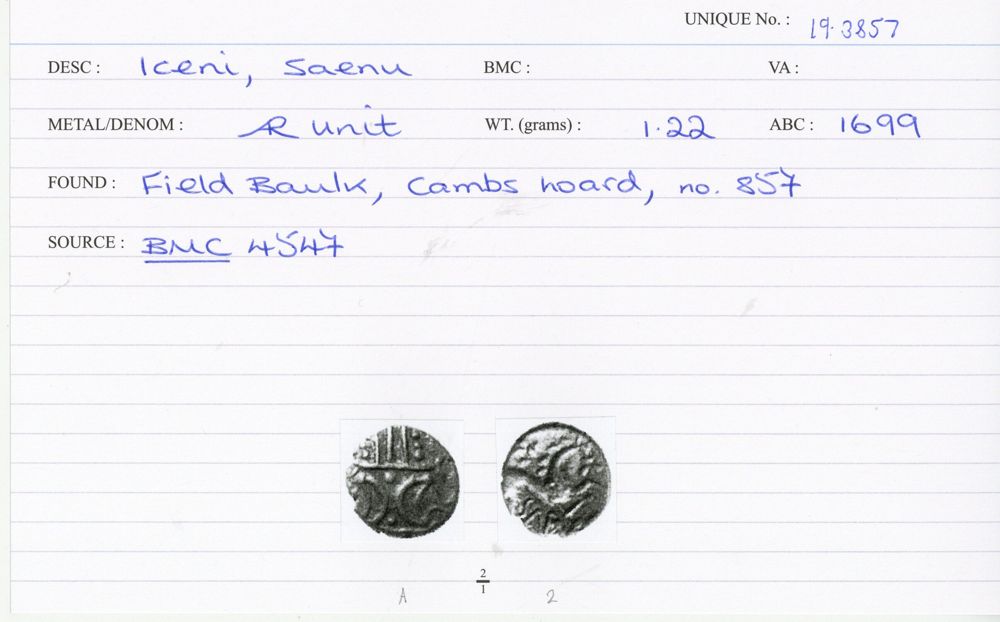 UNIQUE No. : 19.3857
DESC : Iceni, Saenu BMC : VA :
METAL/DENOM : AR unit WT. (grams) : 1.22 ABC : 1699
FOUND : Field Baulk, Cambs hoard, no. 857
SOURCE : BMC 4547
2/1
A 2